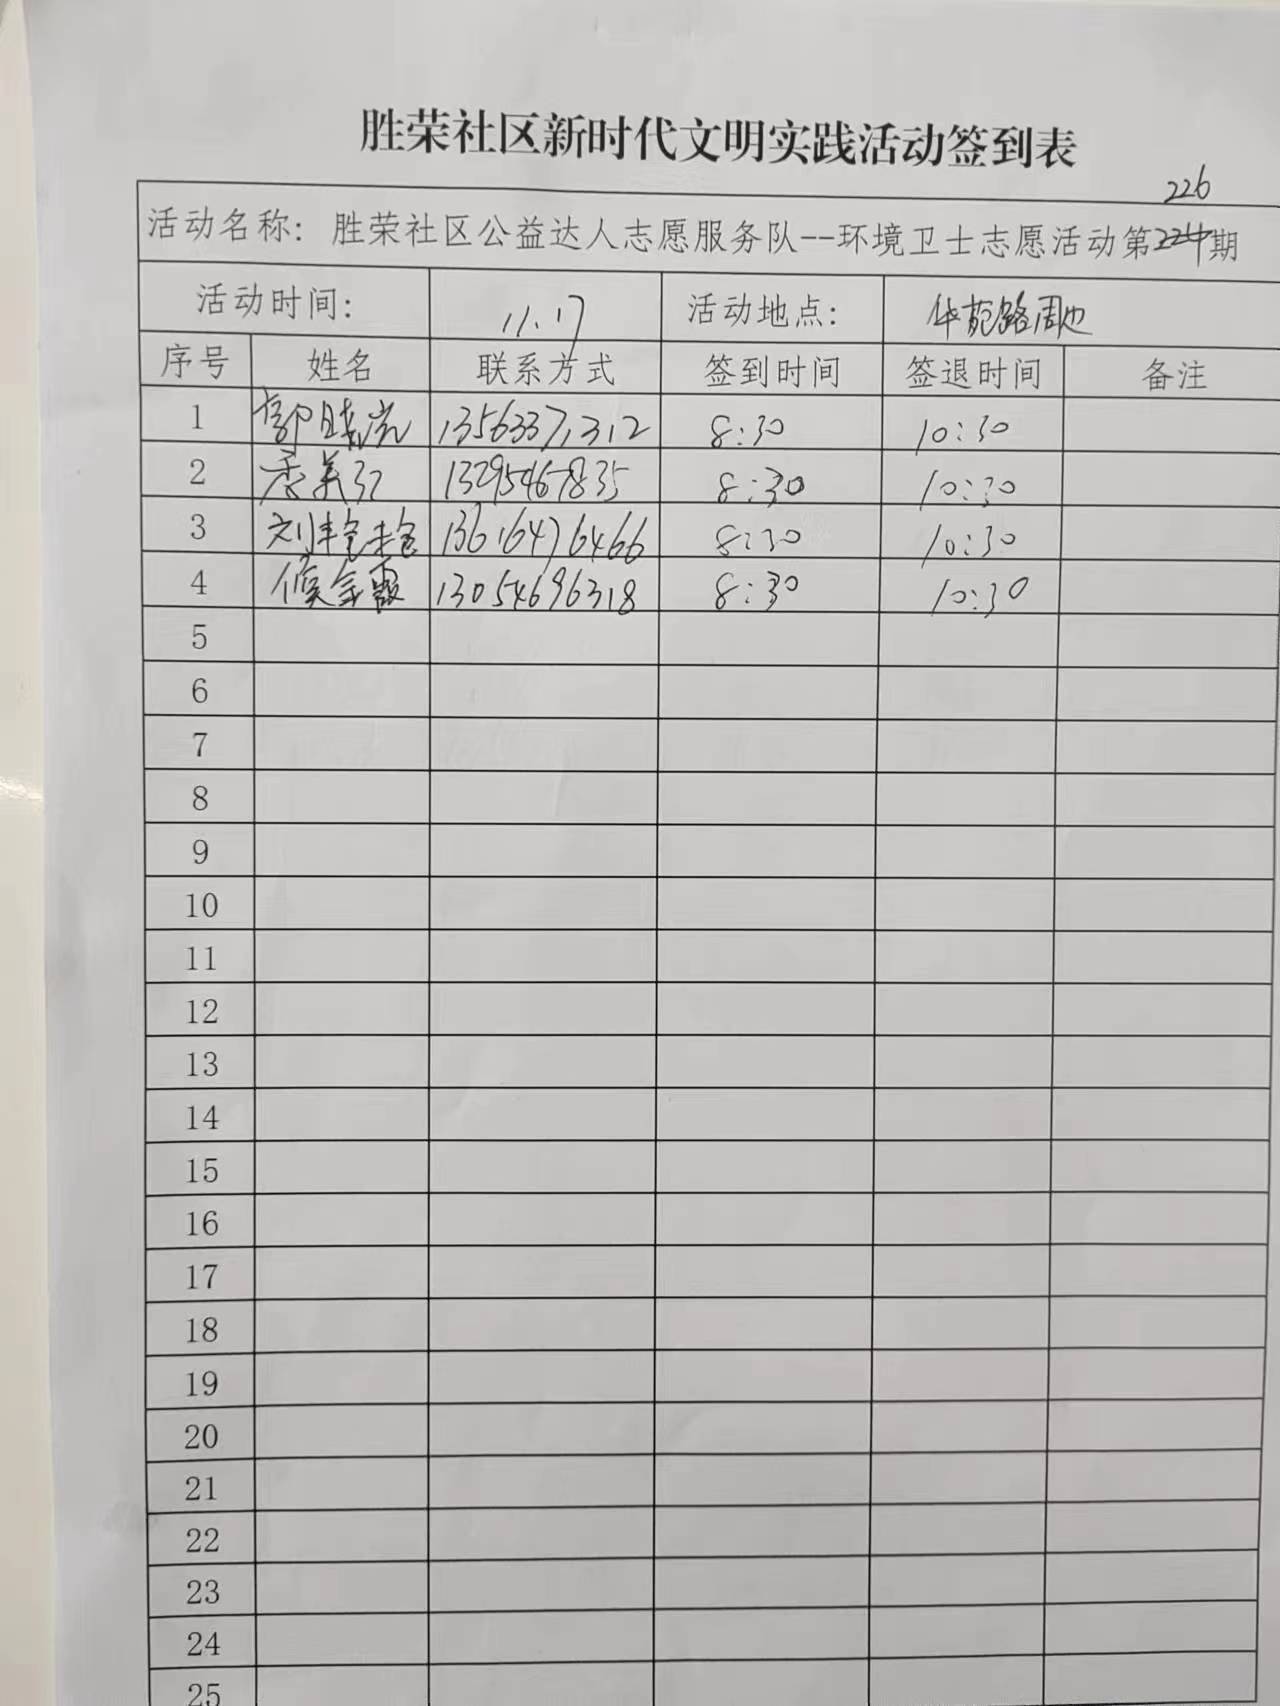 胜荣社区新时代文明实践活动签到表
226
活动名称：胜荣社区公益达人志愿服务队--环境卫士志愿活动第224期
活动时间： 11.17 活动地点： 华苑路周边
序号 姓名 联系方式 签到时间 签退时间 备注
1 郭 13563371312 8:30 10:30
2 季美 13295467835 8:30 10:30
3 刘艳艳 13616476466 8:30 10:30
4 侯金霞 13054696318 8:30 10:30
5
6
7
8
9
10
11
12
13
14
15
16
17
18
19
20
21
22
23
24
25